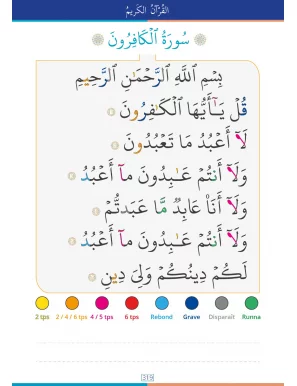 القُرْآنُ الكَرِيمُ
سُورَةُ ٱلْكَافِرُونَ
بِسْمِ ٱللَّهِ ٱلرَّحْمَـٰنِ ٱلرَّحِيمِ
قُلْ يَـٰٓأَيُّهَا ٱلْكَـٰفِرُونَ
لَآ أَعْبُدُ مَا تَعْبُدُونَ
وَلَآ أَنتُمْ عَـٰبِدُونَ مَآ أَعْبُدُ
وَلَآ أَنَا۠ عَابِدٌ مَّا عَبَدتُّمْ
وَلَآ أَنتُمْ عَـٰبِدُونَ مَآ أَعْبُدُ
لَكُمْ دِينُكُمْ وَلِىَ دِينِ
2 tps 2 / 4 / 6 tps 4 / 5 tps 6 tps Rebond Grave Disparaît Runna